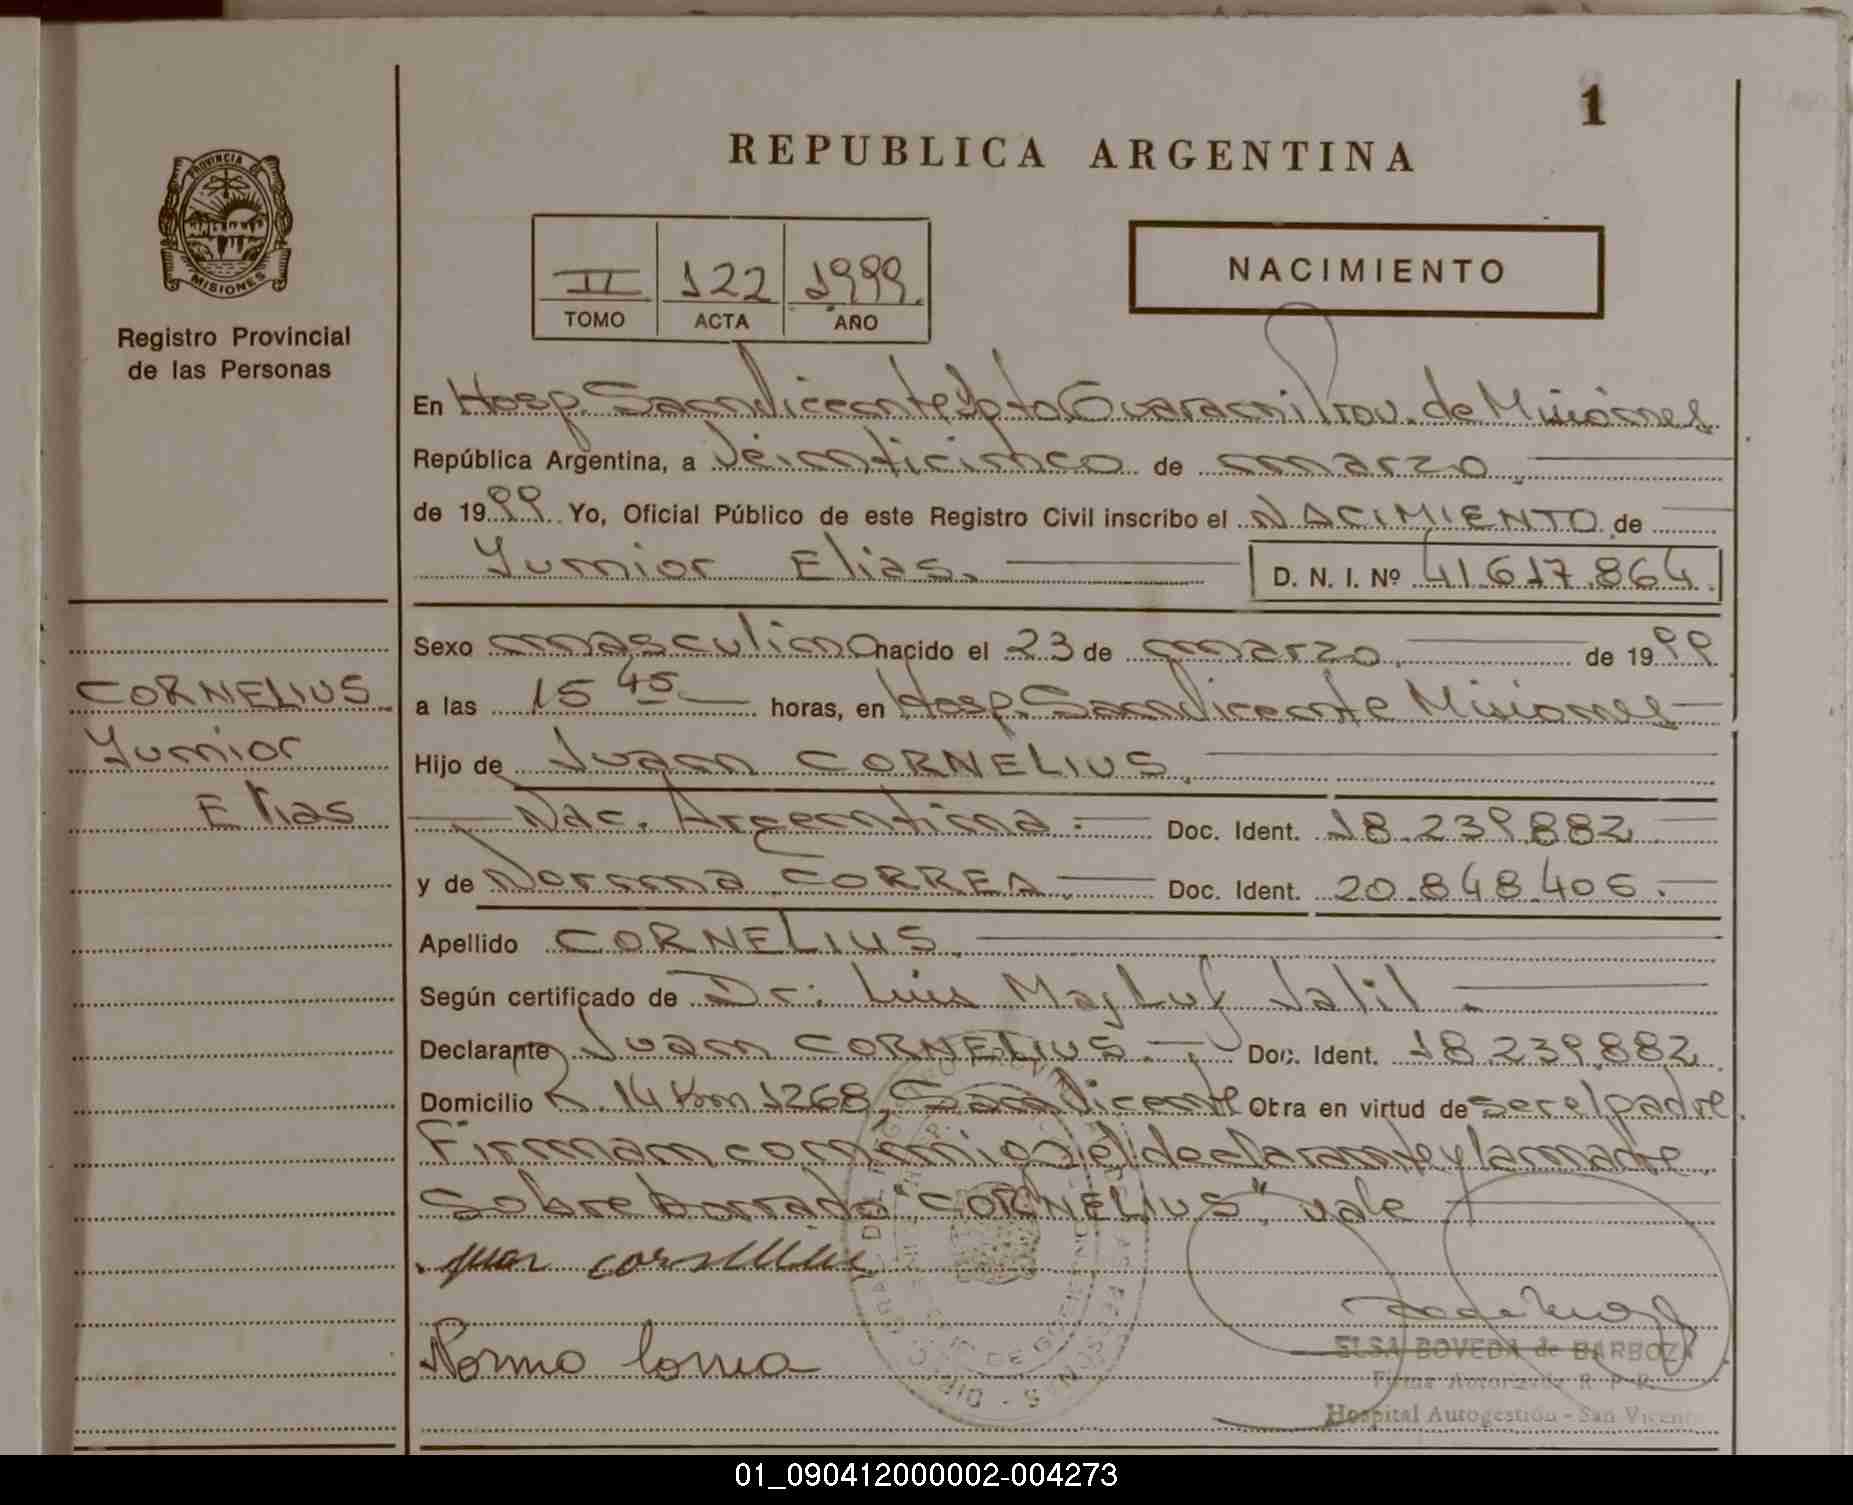 1
REPUBLICA ARGENTINA
PROVINCIA
MISIONES
Registro Provincial
de las Personas
II 122 1999
TOMO ACTA AÑO
NACIMIENTO
En Hosp. San Vicente Dpto Guarani Prov. de Misiones
República Argentina, a Veinticinco de marzo
de 1999 Yo, Oficial Público de este Registro Civil inscribo el NACIMIENTO de
Yunior Elias. D. N. I. Nº 41.617.864.
CORNELIUS
Yunior
Elias
Sexo masculino nacido el 23 de marzo de 1999
a las 15 45 horas, en Hosp. San Vicente Misiones
Hijo de Juan CORNELIUS.
Nac. Argentina. Doc. Ident. 18.239.882
y de Norma CORREA. Doc. Ident. 20.848.406.
Apellido CORNELIUS.
Según certificado de Dr. Luis Majluf Jalil
Declarante Juan CORNELIUS Doc. Ident. 18.239.882
Domicilio R. 14 Km 1268, San Vicente Obra en virtud de ser el padre.
Firman conmigo el declarante y la madre.
Sobre borrado "CORNELIUS". vale
juan cornelius
Norma Correa
ELSA BOVEDA de BARBOZA
Firma Autorizada R. P. P.
Hospital Autogestión - San Vicente
01_090412000002-004273